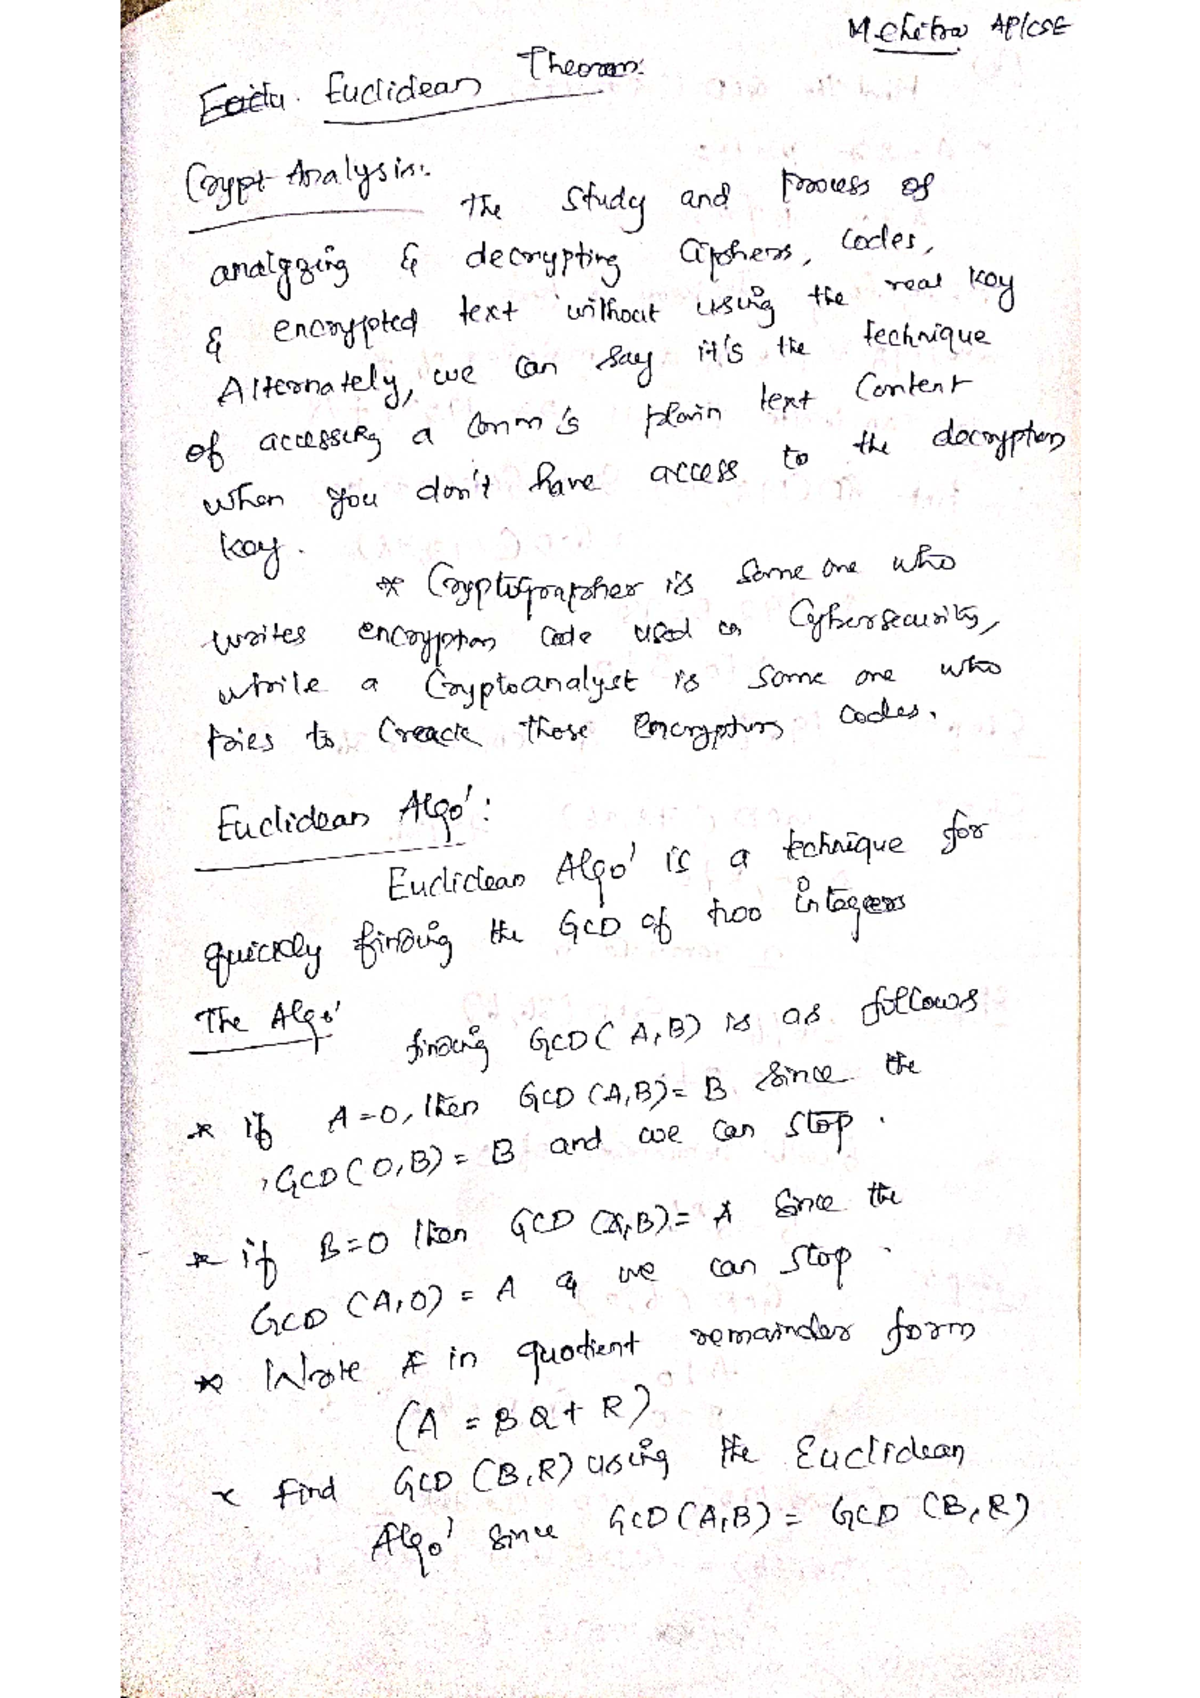 M. Chitra AP/CSE
Euclidean Theorem:
Crypt Analysis:
The study and process of
analyzing & decrypting Ciphers, Codes,
& encrypted text without using the real key
Alternately, we can say it's the technique
of accessing a Comm's plain text Content
when you don't have access to the decryption
key.
* Cryptographer is some one who
writes encryption Code used in Cybersecurity,
while a Cryptoanalyst is some one who
tries to Creack those encryption Codes.
Euclidean Algo':
Euclidean Algo' is a technique for
quickly finding the GCD of two integers
The Algo'
finding GCD (A,B) is as follows
* if A=0, then GCD (A,B)= B since the
GCD (0,B) = B and we can stop.
* if B=0 then GCD (A,B)= A since the
GCD (A,0) = A & we can stop.
* Write A in quotient remainder form
(A = BQ + R)
* find GCD (B,R) using the Euclidean
Algo' since GCD (A,B) = GCD (B,R)